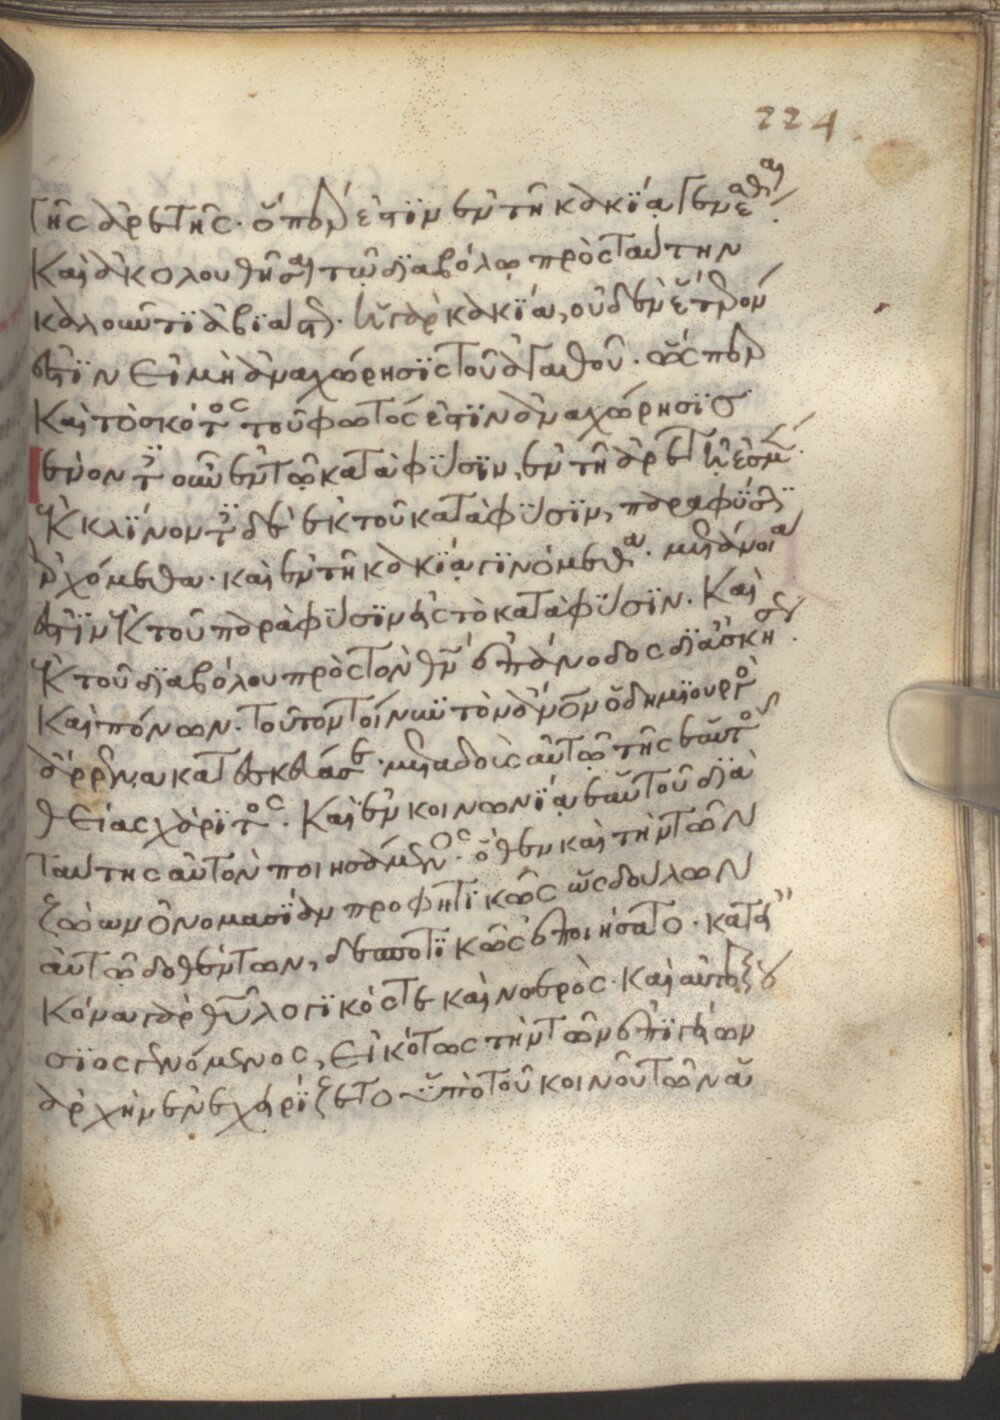 224
τῆς ἀρετῆς. ὅπερ ἐστὶν ἐν τῇ κακίᾳ γενέσθαι.
Καὶ ἀκολουθῆσαι τῷ διαβόλῳ πρὸς ταύτην
καλοῦντι ἀβιάστως. ἡ γὰρ κακία, οὐδὲν ἕτερον
ἐστὶν εἰ μὴ ἀναχώρησις τοῦ ἀγαθοῦ. ὥσπερ
Καὶ τὸ σκότος τοῦ φωτός ἐστὶν ἀναχώρησις
ἐνόντες οὖν ἐν τῷ κατὰ φύσιν, ἐν τῇ ἀρετῇ ἐσμέν.
Ἐκκλίνοντες δὲ ἐκ τοῦ κατὰ φύσιν, παρὰ φύσιν
ἐρχόμεθα. καὶ ἐν τῇ κακίᾳ γινόμεθα. μετάνοια
ἐστὶν ἐκ τοῦ παρὰ φύσιν εἰς τὸ κατὰ φύσιν. Καὶ
ἐκ τοῦ διαβόλου πρὸς τὸν θν ἐπάνοδος δι ἀσκήσεως.
Καὶ πόνων. τοῦτον τοίνυν τὸν ἄνον ὁ δημιουργὸς
ἄρρενα κατεσκεύασε. μεταδοὺς αὐτῷ τῆς ἑαυτοῦ
θείας χάριτος. Καὶ ἐν κοινωνίᾳ ἑαυτοῦ διὰ
ταύτης αὐτὸν ποιησάμενος. ὅθεν καὶ τὴν τῶν
ζώων ὀνομασίαν προφητικῶς ὡς δούλων
αὐτῷ δοθέντων, δεσποτικῶς ἐποιήσατο. κατ' εἰ
κόνα γὰρ θυ λογικός τε καὶ νοερὸς. καὶ αὐτεξού
σιος γενόμενος, εἰκότως τὴν τῶν ἐπιγείων
ἀρχὴν ἐνεχειρίζετο ὑπὸ τοῦ κοινοῦ τῶν ἁ